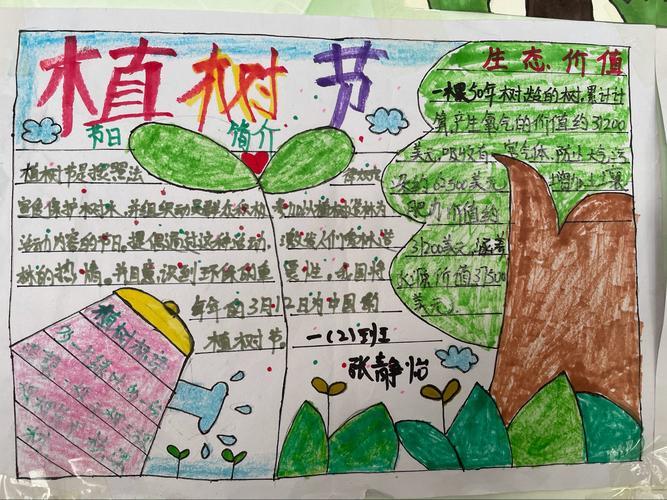 植树节
节日 简介
植树节是按照法
宣传保护树木,并组织动员群众积极参加以植树造林为
活动内容的节日。提倡通过这种活动,激发人们爱林造
林的热情。并且意识到环保的重要性,我国将
每年的3月12日为中国的
植树节。
一(2)班
张静怡
生态价值
一棵50年树龄的树,累计计
算,产生氧气的价值约31200
美元,吸收有害气体,防止大气污
染约62500美元 增加土壤
肥力 价值约
31200美元,涵养
水源价值37500
美元。
植树